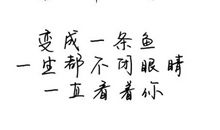 变成一条鱼
一生都不闭眼睛
一直看着你